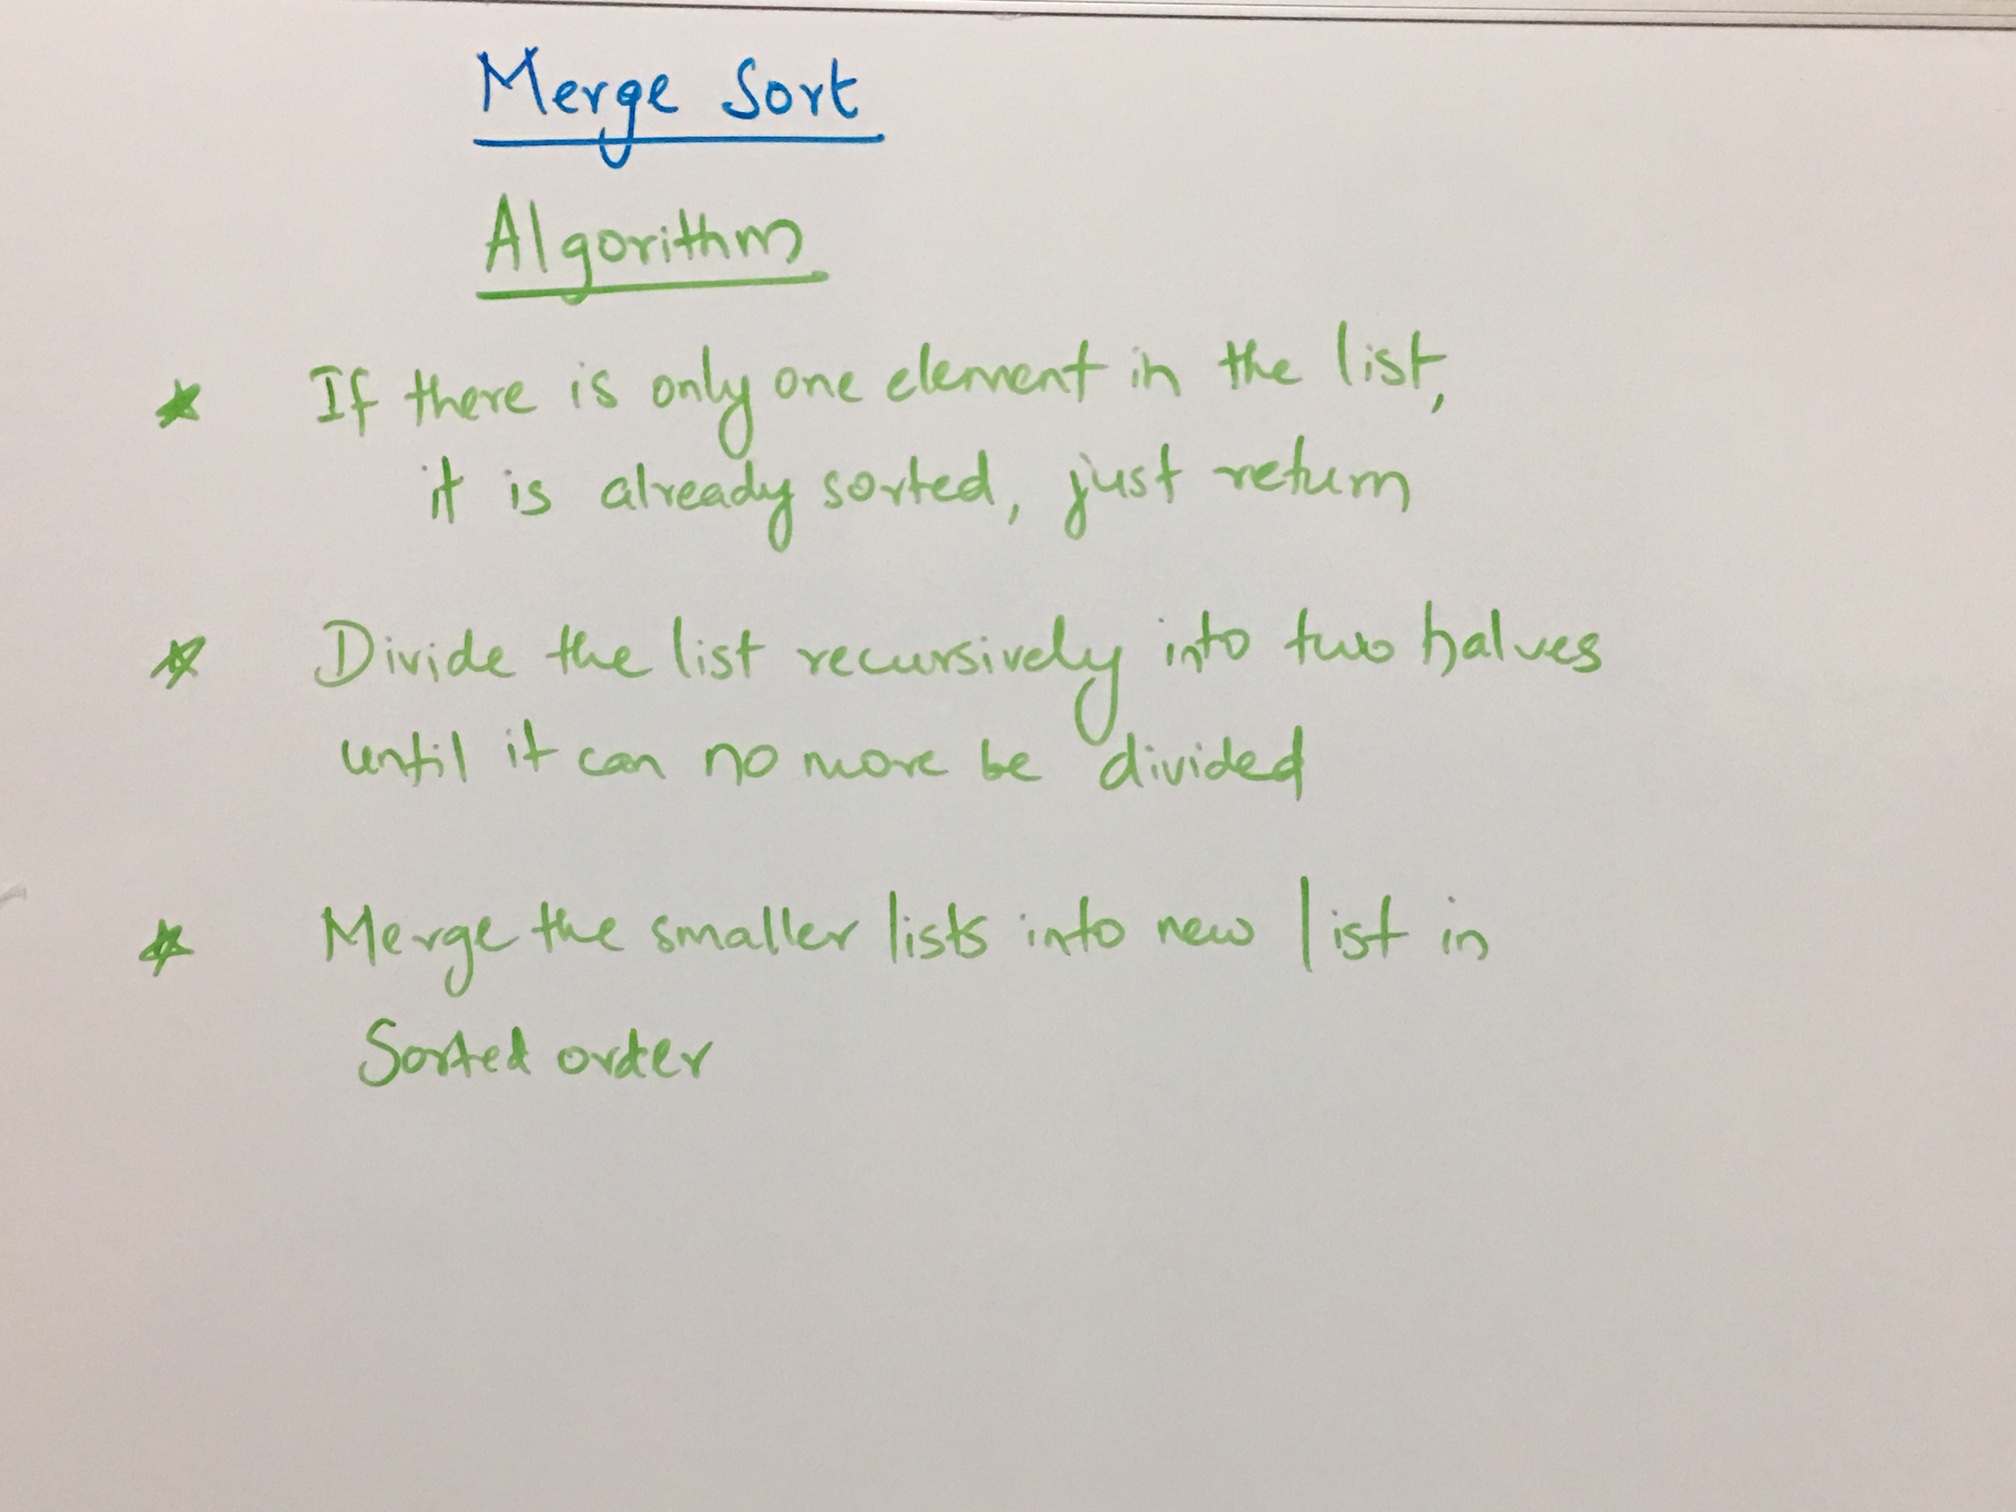 Merge Sort
Algorithm
* If there is only one element in the list,
it is already sorted, just return
* Divide the list recursively into two halves
until it can no more be divided
* Merge the smaller lists into new list in
Sorted order